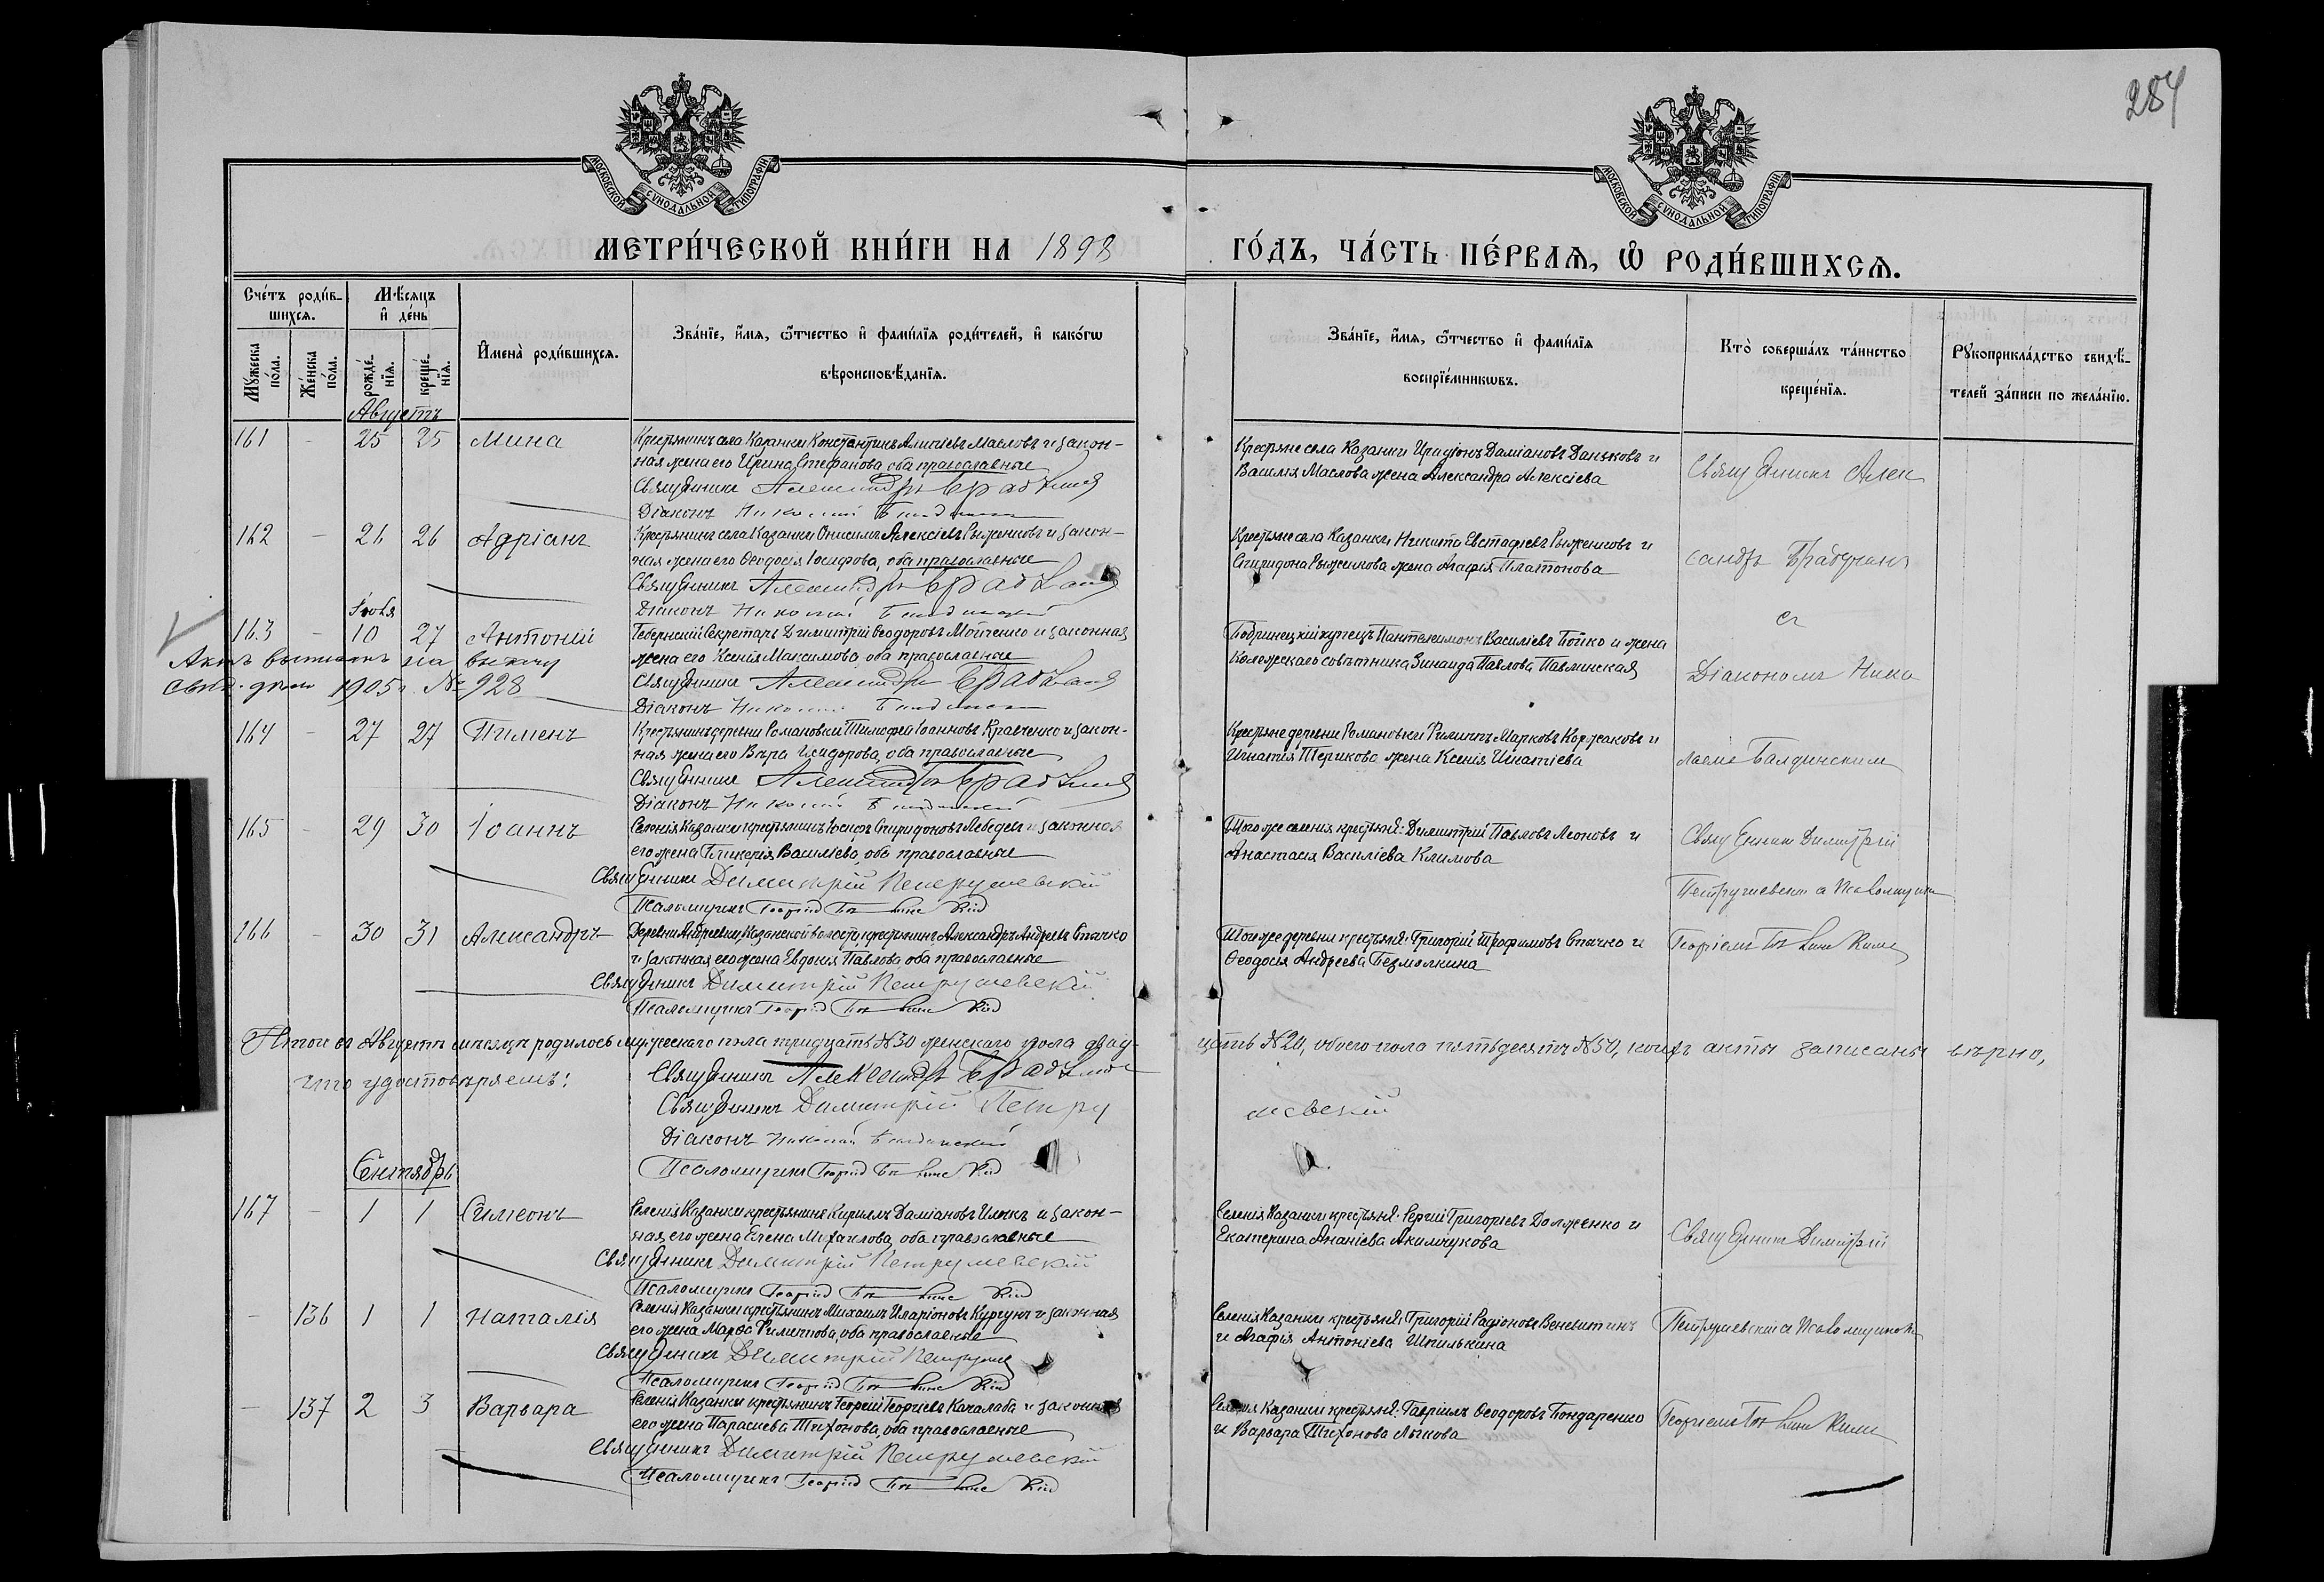 284
МОСКОВСКОЙ СѴНОДАЛЬНОЙ ТИПОГРАФІИ
МОСКОВСКОЙ СѴНОДАЛЬНОЙ ТИПОГРАФІИ
МЕТРИ́ЧЕСКОЙ КНИ́ГИ НА 1898 ГО́ДЪ, ЧА́СТЬ ПЕ́РВАѦ, Ѡ҆ РОДИ́ВШИХСѦ.
Сче́тъ роди́в-
шихсѧ.
Мѣ́сѧцъ
и҆ де́нь
И҆мена̀ роди́вшихсѧ.
Зва́нїе, и҆́мѧ, ѻ҆́тчество и҆ фамі́лїѧ роди́телей, и҆ како́гѡ
вѣроисповѣ́данїѧ.
Зва́нїе, и҆́мѧ, ѻ҆́тчество и҆ фамі́лїѧ
воспрїе́мникѡвъ.
Кто̀ соверша́лъ та́инство
креще́нїѧ.
Рꙋкоприкла́дство свидѣ́-
телей за́писи по жела́нїю.
Мꙋ́жеска
по́ла.
Же́нска
по́ла.
рожде́-
нїѧ.
креще́-
нїѧ.
Августъ
161 - 25 25 Мина
Крестьянинъ села Казанки Константинъ Масловъ и закон-
ная жена его Ирина Стефанова, оба православные
Священникъ Александръ
Діаконъ Николай
Крестьяне села Казанки Даміановъ Даньковъ и
Василія Маслова жена Александра Алексіева
Священникъ Алек
162 - 26 26 Адріанъ
Крестьянинъ села Казанки Онисимъ Алексіевъ Рыженковъ и закон-
ная жена его Ѳеодосія Іосифова, оба православные
Священникъ Александръ
Діаконъ Николай
Крестьяне села Казанки Никита Евстафіевъ Рыженковъ и
Спиридона Рыженкова жена Агафія Платонова
сандръ
съ
163 - 10 27 Антоній
Актъ выписанъ на выдачу
свид. 1905 г. № 928
Губернскій Секретарь Димитрій Ѳеодоровъ Мотченко и законная
жена его Ксенія Максимова, оба православные
Священникъ Александръ
Діаконъ Николай
Бобринецкій купецъ Пантелеимонъ Василіевъ Бойко и жена
Коллежскаго совѣтника Зинаида Павлова Павлинская
Діакономъ Нико
164 - 27 27 Пименъ
Крестьянинъ деревни Романовки Тимофей Іоанновъ Кравченко и закон-
ная жена его Вѣра Исидорова, оба православные
Священникъ Александръ
Діаконъ Николай
Крестьяне деревни Романовки Филиппъ Марковъ Коржаковъ и
Игнатія Терикова жена Ксенія Игнатіева
лаемъ Балдинскимъ
165 - 29 30 Іоаннъ
Селенія Казанки крестьянинъ Іосифъ Спиридоновъ Лебедев и законная
его жена Гликерія Василіева, оба православные
Священникъ Димитрій Петрушевскій
Псаломщикъ Георгій
Того же селенія крестьяне: Димитрій Павловъ Леоновъ и
Анастасія Василіева Климова
Священникъ Димитрій
Петрушевскій а Псаломщикъ
166 - 30 31 Александръ
Деревни Андреевки, Казанской волости, крестьянинъ Александръ Андреевъ Спачко
и законная его жена Евдокія Павлова, оба православные
Священникъ Димитрій Петрушевскій
Псаломщикъ Георгій
Той же деревни крестьяне: Григорій Трофимовъ Спачко и
Ѳеодосія Андреева Безмолкина
Георгіемъ
Итого въ Августѣ мѣсяцѣ родилось мужескаго пола тридцать №30 женскаго пола двад-
цать №20, обоего пола пятьдесятъ №50, коихъ акты записаны вѣрно,
что удостовѣряемъ:
Священникъ Александръ
Священникъ Димитрій Петру
шевскій
Діаконъ Николай Балдинскій
Псаломщикъ Георгій
Сентябрь
167 - 1 1 Симеонъ
Селенія Казанки крестьянинъ Кириллъ Даміановъ и закон-
ная его жена Елена Михаилова, оба православные
Священникъ Димитрій Петрушевскій
Псаломщикъ Георгій
Селенія Казанки крестьяне: Сергій Григоріевъ Долженко и
Екатерина Ананіева Акимчукова
Священникъ Димитрій
- 136 1 1 Наталія
Селенія Казанки крестьянинъ Михаилъ Иларіоновъ и законная
его жена Марѳа Филиппова, оба православные
Священникъ Димитрій
Псаломщикъ Георгій
Селенія Казанки крестьяне: Григорій Радіоновъ Веневитинъ
и Агафія Антоніева Шпилькина
Петрушевскій а Псаломщикъ
- 137 2 3 Варвара
Селенія Казанки крестьянинъ Георгій Георгіевъ Качалаба и законная
его жена Параскева Тихонова, оба православные
Священникъ Димитрій Петрушевскій
Псаломщикъ Георгій
Селенія Казанки крестьяне: Гавріилъ Ѳеодоровъ Бондаренко
и Варвара Тихонова Лыкова
Георгіемъ